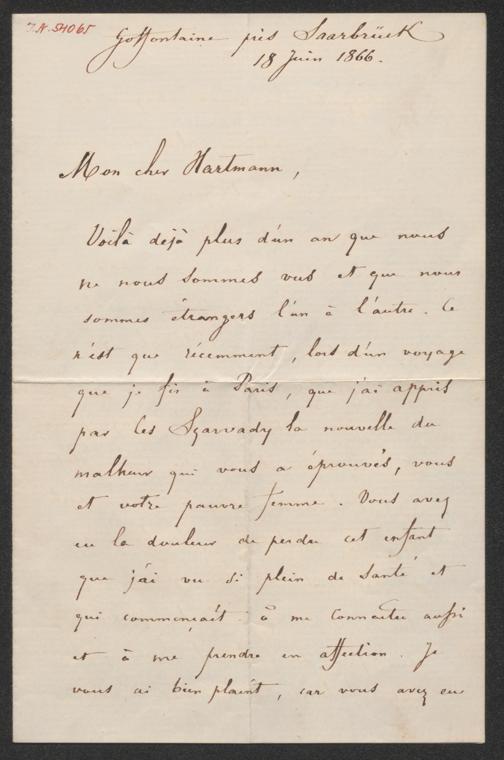 I.N. 54065
Goffontaine près Saarbrück
18 Juin 1866.
Mon cher Hartmann,
Voilà déjà plus d'un an que nous
ne nous sommes vus et que nous
sommes étrangers l'un à l'autre. Ce
n'est que récemment, lors d'un voyage
que je fis à Paris, que j'ai appris
par les Szarvady la nouvelle du
malheur qui vous a éprouvés, vous
et votre pauvre femme. Vous avez
eu la douleur de perdre cet enfant
que j'ai vu si plein de santé et
qui commençait à me connaître aussi
et à me prendre en affection. Je
vous ai bien plaint, car vous avez eu